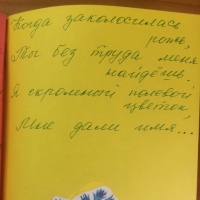 Когда заколосилась
рожь,
Ты без труда меня
найдёшь.
Я скромный полевой
цветок,
Мне дали имя...